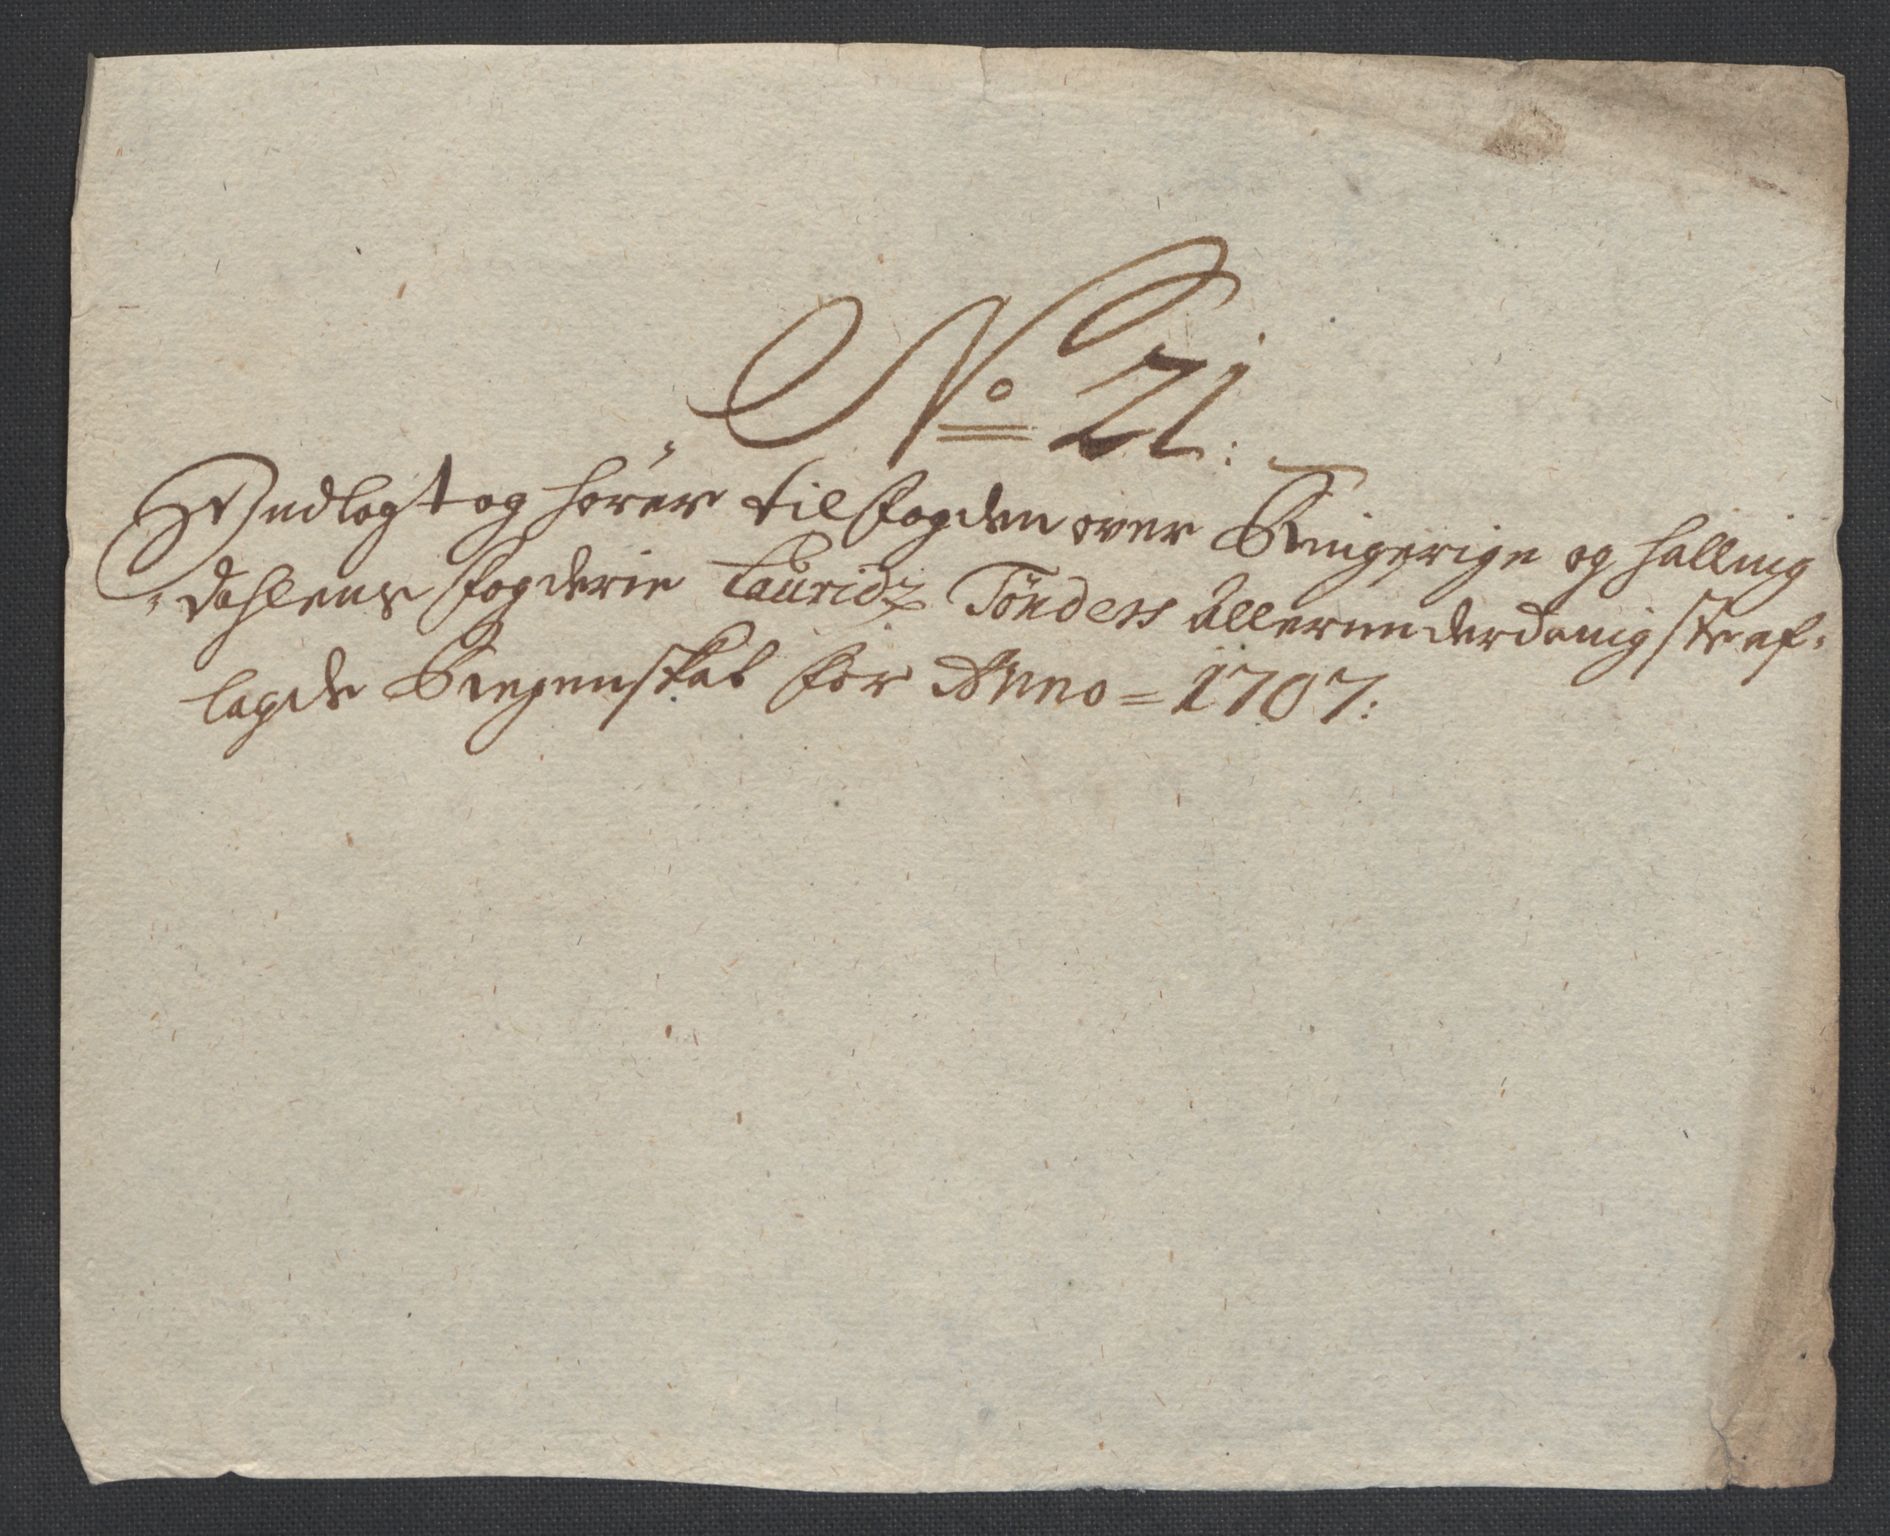 No 21:
Indlagt og hörer til fogden over Ringerige og Halling
dahlens fogderie Lauridz Tönders Allerunderdanigste af-
lagde Regenskab for Anno = 1707: